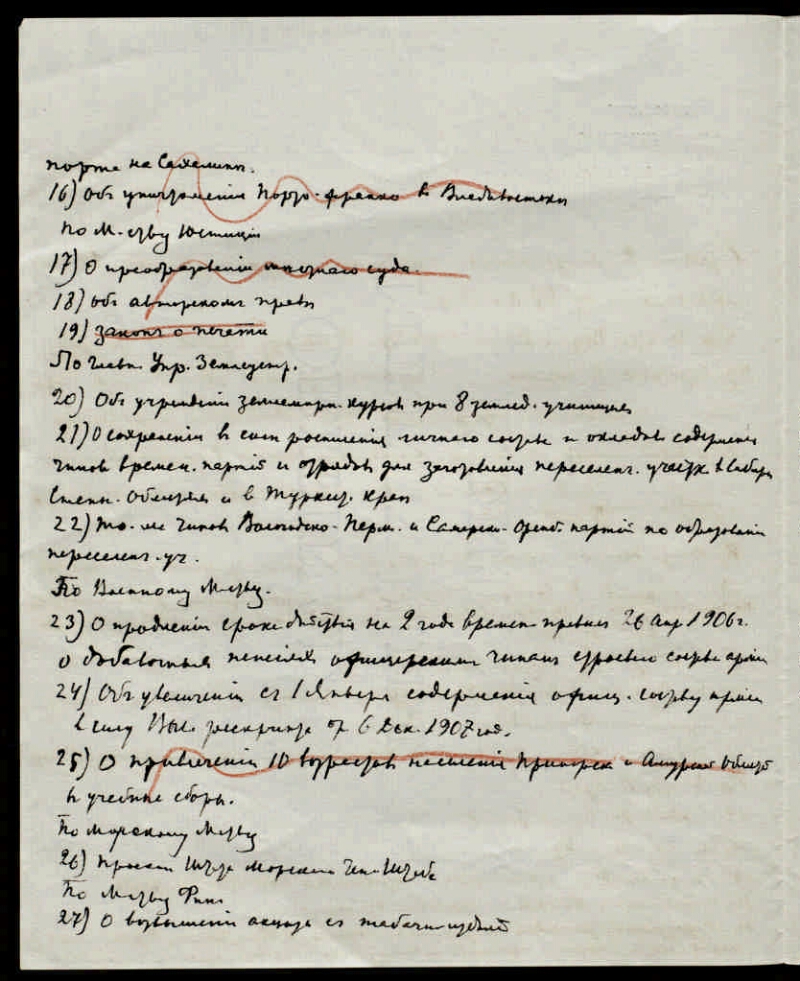 порта на Сахалине.
16) Объ уничтоженіи Порто-франко в Владивостоке
По М-ству Юстиціи
17) О преобразованіи местнаго суда.
18) Объ авторскомъ праве
19) Законъ о печати
По Главн. Упр. Землеустр.
20) Объ учрежденіи землемерн. курсов при 8 землед. училищах
21) О сохраненіи в силе росписанія личнаго состава и окладов содержанія
чинов времен. партій и отрядов для заготовленія переселен. участк. в Сибири
Степн. Областях и в Туркест. крае
22) То-же чинов Вологодско-Перм. и Самарско-Оренб. партій по образованію
переселен. уч.
По Военному М-ству.
23) О продленіи срока действія на 2 года времен. правил 26 Апр 1906 г.
о добавочных пенсіях офицерским чинам строевого состава арміи
24) Объ увеличеніи съ 1 Января содержанія офиц. составу арміи
в силу Выс. рескрипта от 6 Дек. 1907 год.
25) О привлеченіи 10 возрастов населенія Приморск. и Амурской Областей
к учебные сборы.
По Морскому М-ству
26) Проект Штата Морского Ген. Штаба
По М-ству Фин.
27) О возвышеніи акциза съ табачн. изделій